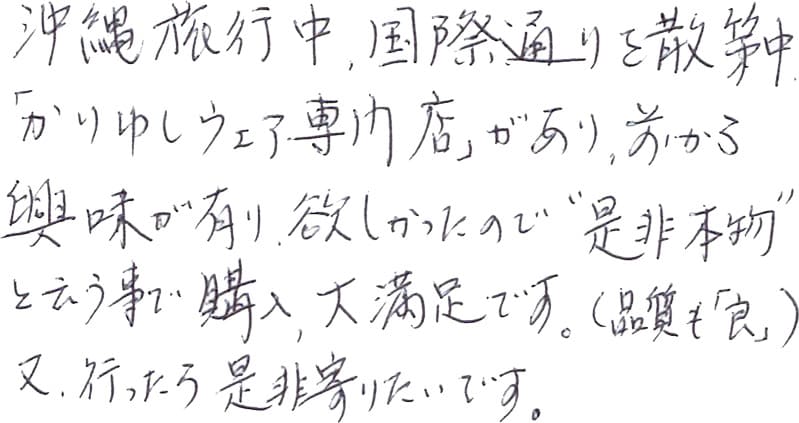 沖縄旅行中、国際通りを散策中、
「かりゆしウェア専門店」があり、前から
興味が有り、欲しかったので“是非本物”
と云う事で購入、大満足です。(品質も「良」)
又、行ったら是非寄りたいです。